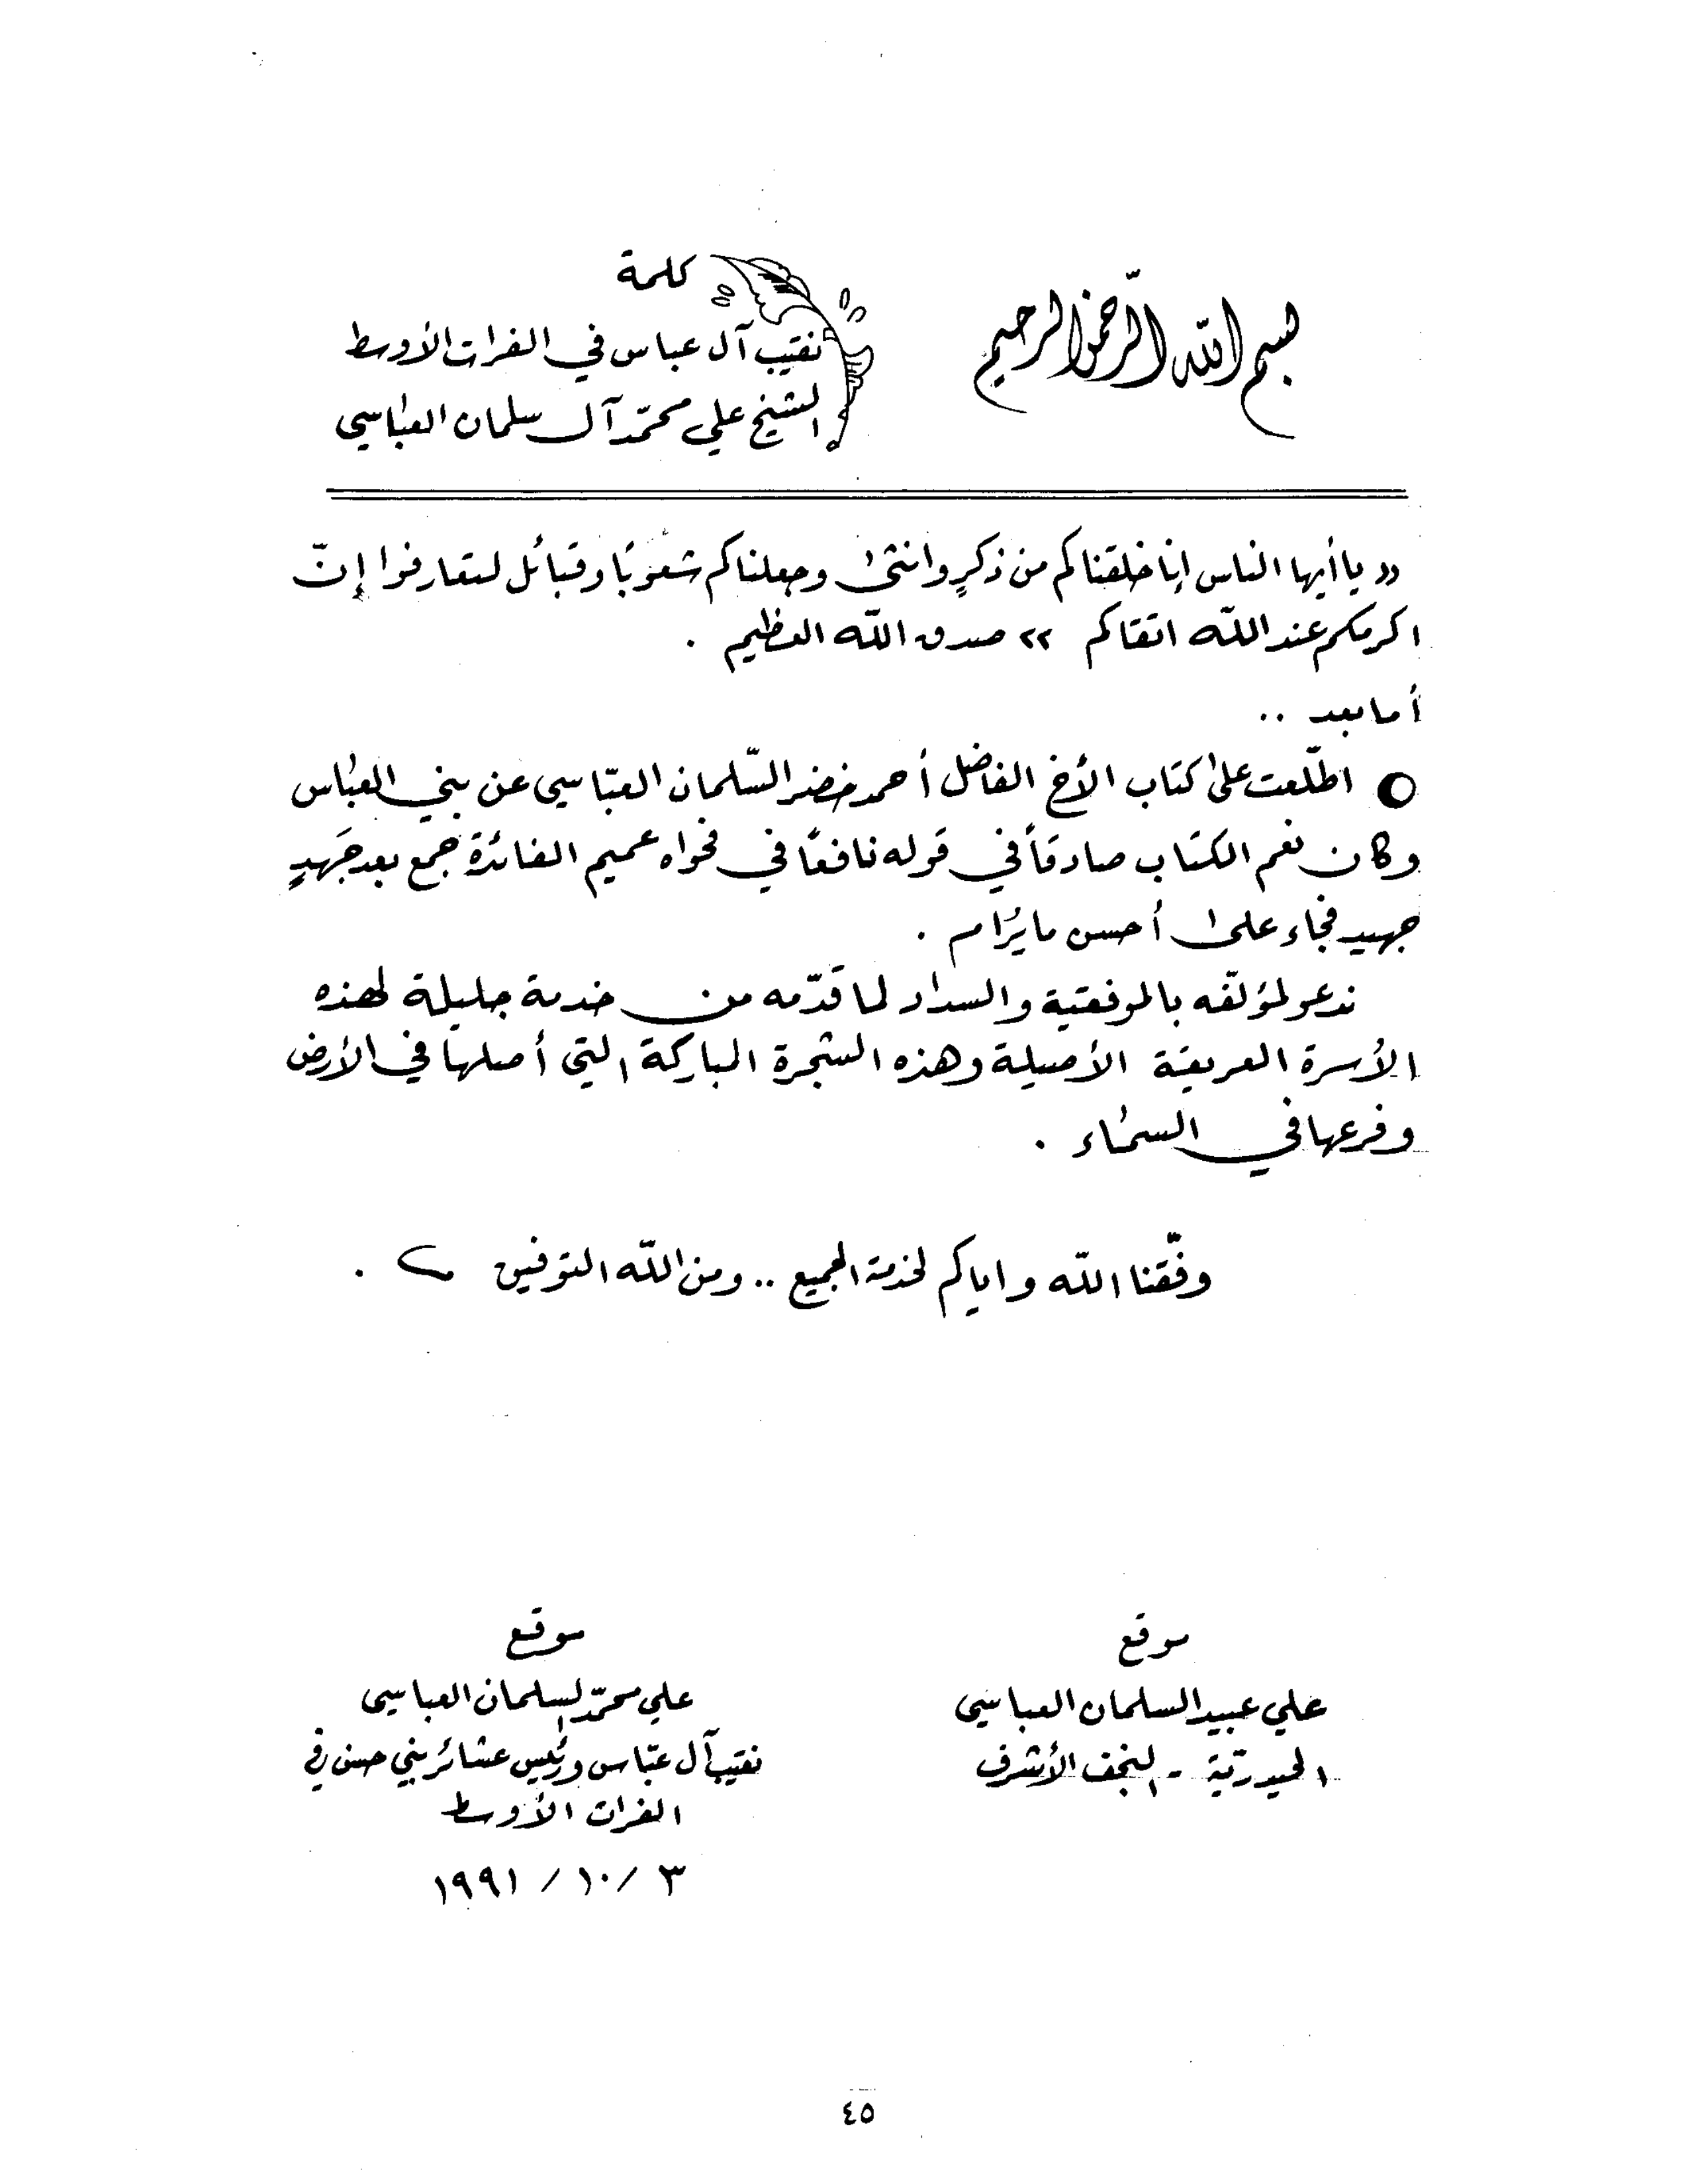 بسم الله الرّحمن الرحيم
كلمة
نقيب آل عباس في الفرات الأوسط
الشيخ علي محمّد آل سلمان العباسي
« يا أيها الناس إنا خلقناكم من ذكرٍ وانثى وجعلناكم شعوبًا وقبائل لتعارفوا إنّ
اكرمكم عند اللّه اتقاكم » صدق اللّه العظيم .
أما بعد ..
○ اطلّعت على كتاب الأخ الفاضل أحمد خضر السّلمان العبّاسي عن بني العباس
وكان نعم الكتاب صادقاً في قوله نافعًا في فحواه عميم الفائدة جمع بعد جَهدٍ
جهيد فجاء على أحسن ما يُرام .
ندعو لمؤلّفه بالموفقية والسداد لما قدّمه من خدمة جليلة لهذه
الأسرة العريقة الأصيلة وهذه الشجرة المباركة التي أصلها في الأرض
وفرعها في السماء .
وفّقنا اللّه واياكم لخدمة الجميع .. ومن اللّه التوفيق .
موقع
علي عبيد السلمان العباسي
الحيدريّة - النجف الأشرف
موقع
علي محمّد السلمان العباسي
نقيب آل عبّاس ورئيس عشائر بني حسن في
الفرات الأوسط
٣ / ١٠ / ١٩٩١
٤٥